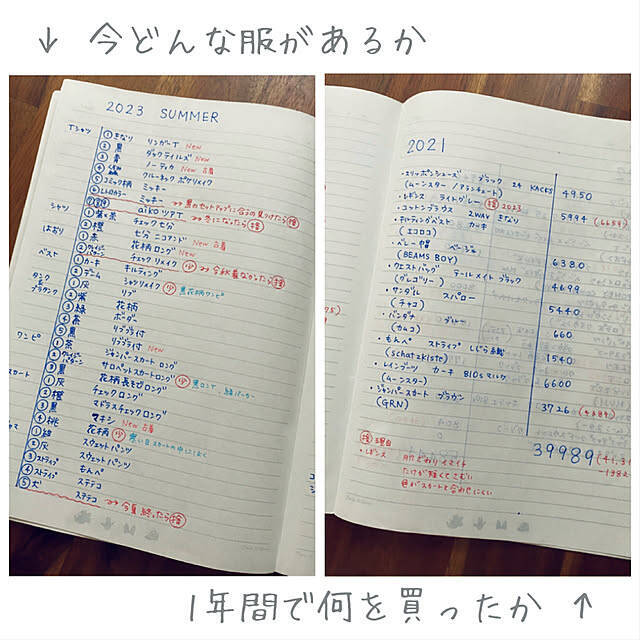 ↓ 今どんな服があるか
2023 SUMMER
Tシャツ ①きなり リンガーT New
②黒 ダックテイルズ New
③青 ノーティカ New 古着
④ クルーネック ポケリメイク
⑤コミック柄 ミッキー
⑥ヒトのカラー ミッキー →→黒のセットアップに合うの見つけたら捨
⑦ aiko ツアT →→冬になったら捨
シャツ ①紫・茶 チェック七分
②橙 七分 ニコアンド New 古着
はおり ①赤 花柄ロング New
②グレイジーパターン チェックリメイク 少 →→今秋着なかったら捨
ベスト ①カーキ キルティング
②デニム シャツリメイク 少 黒花柄ワンピ
タンク ①灰 リブ
②紫 花柄
ブラタンク ③緑 ボーダー
④茶 リブブラ付
⑤黒 リブブラ付 New
ワンピ ①茶 ジャンパースカートロング
②グレイジーパターン サロペットスカートロング
③黒 花柄長そでロング 少 黒ロンT、緑パーカー
①灰 チェックロング
スカート ②橙 マドラスチェックロング
③黒 マキシ New 古着
④桃 花柄 少 寒い日スカートの中にはく
①緑 スウェットパンツ
②灰 スウェットパンツ
③ストライプ もんぺ
④ストライプ ステテコ
⑤犬 ステテコ →→今夏終ったら捨
2021
・スリッポンシューズ ブラック 24 KACKS
(ムーンスター/アランチュート) 4950
・レギンス ライトグレー 捨 2023 5994 (6659)
・コットンブラウス 2WAY きなり
・キルティングベスト カーキ
(エコロコ)
・ベレー帽 ベージュ 6380
(BEAMS BOY)
・ウエストバッグ テールメイト ブラック 4699
(グレゴリー)
・サンダル スパロー 5440
(チャコ)
・バンダナ ブルー 660
(カムコ)
・もんぺ ストライプ しじら織 1540
(schatzkiste)
・レインブーツ カーキ 810s マルケ 6600
(ムーンスター)
・ジャンパースカート ブラウン 3726
(GRN)
39989
捨 理由
・レギンス 肌ざわりイマイチ
たけが短くてさむい
スカートと合わせにくい
1年間で何を買ったか ↑